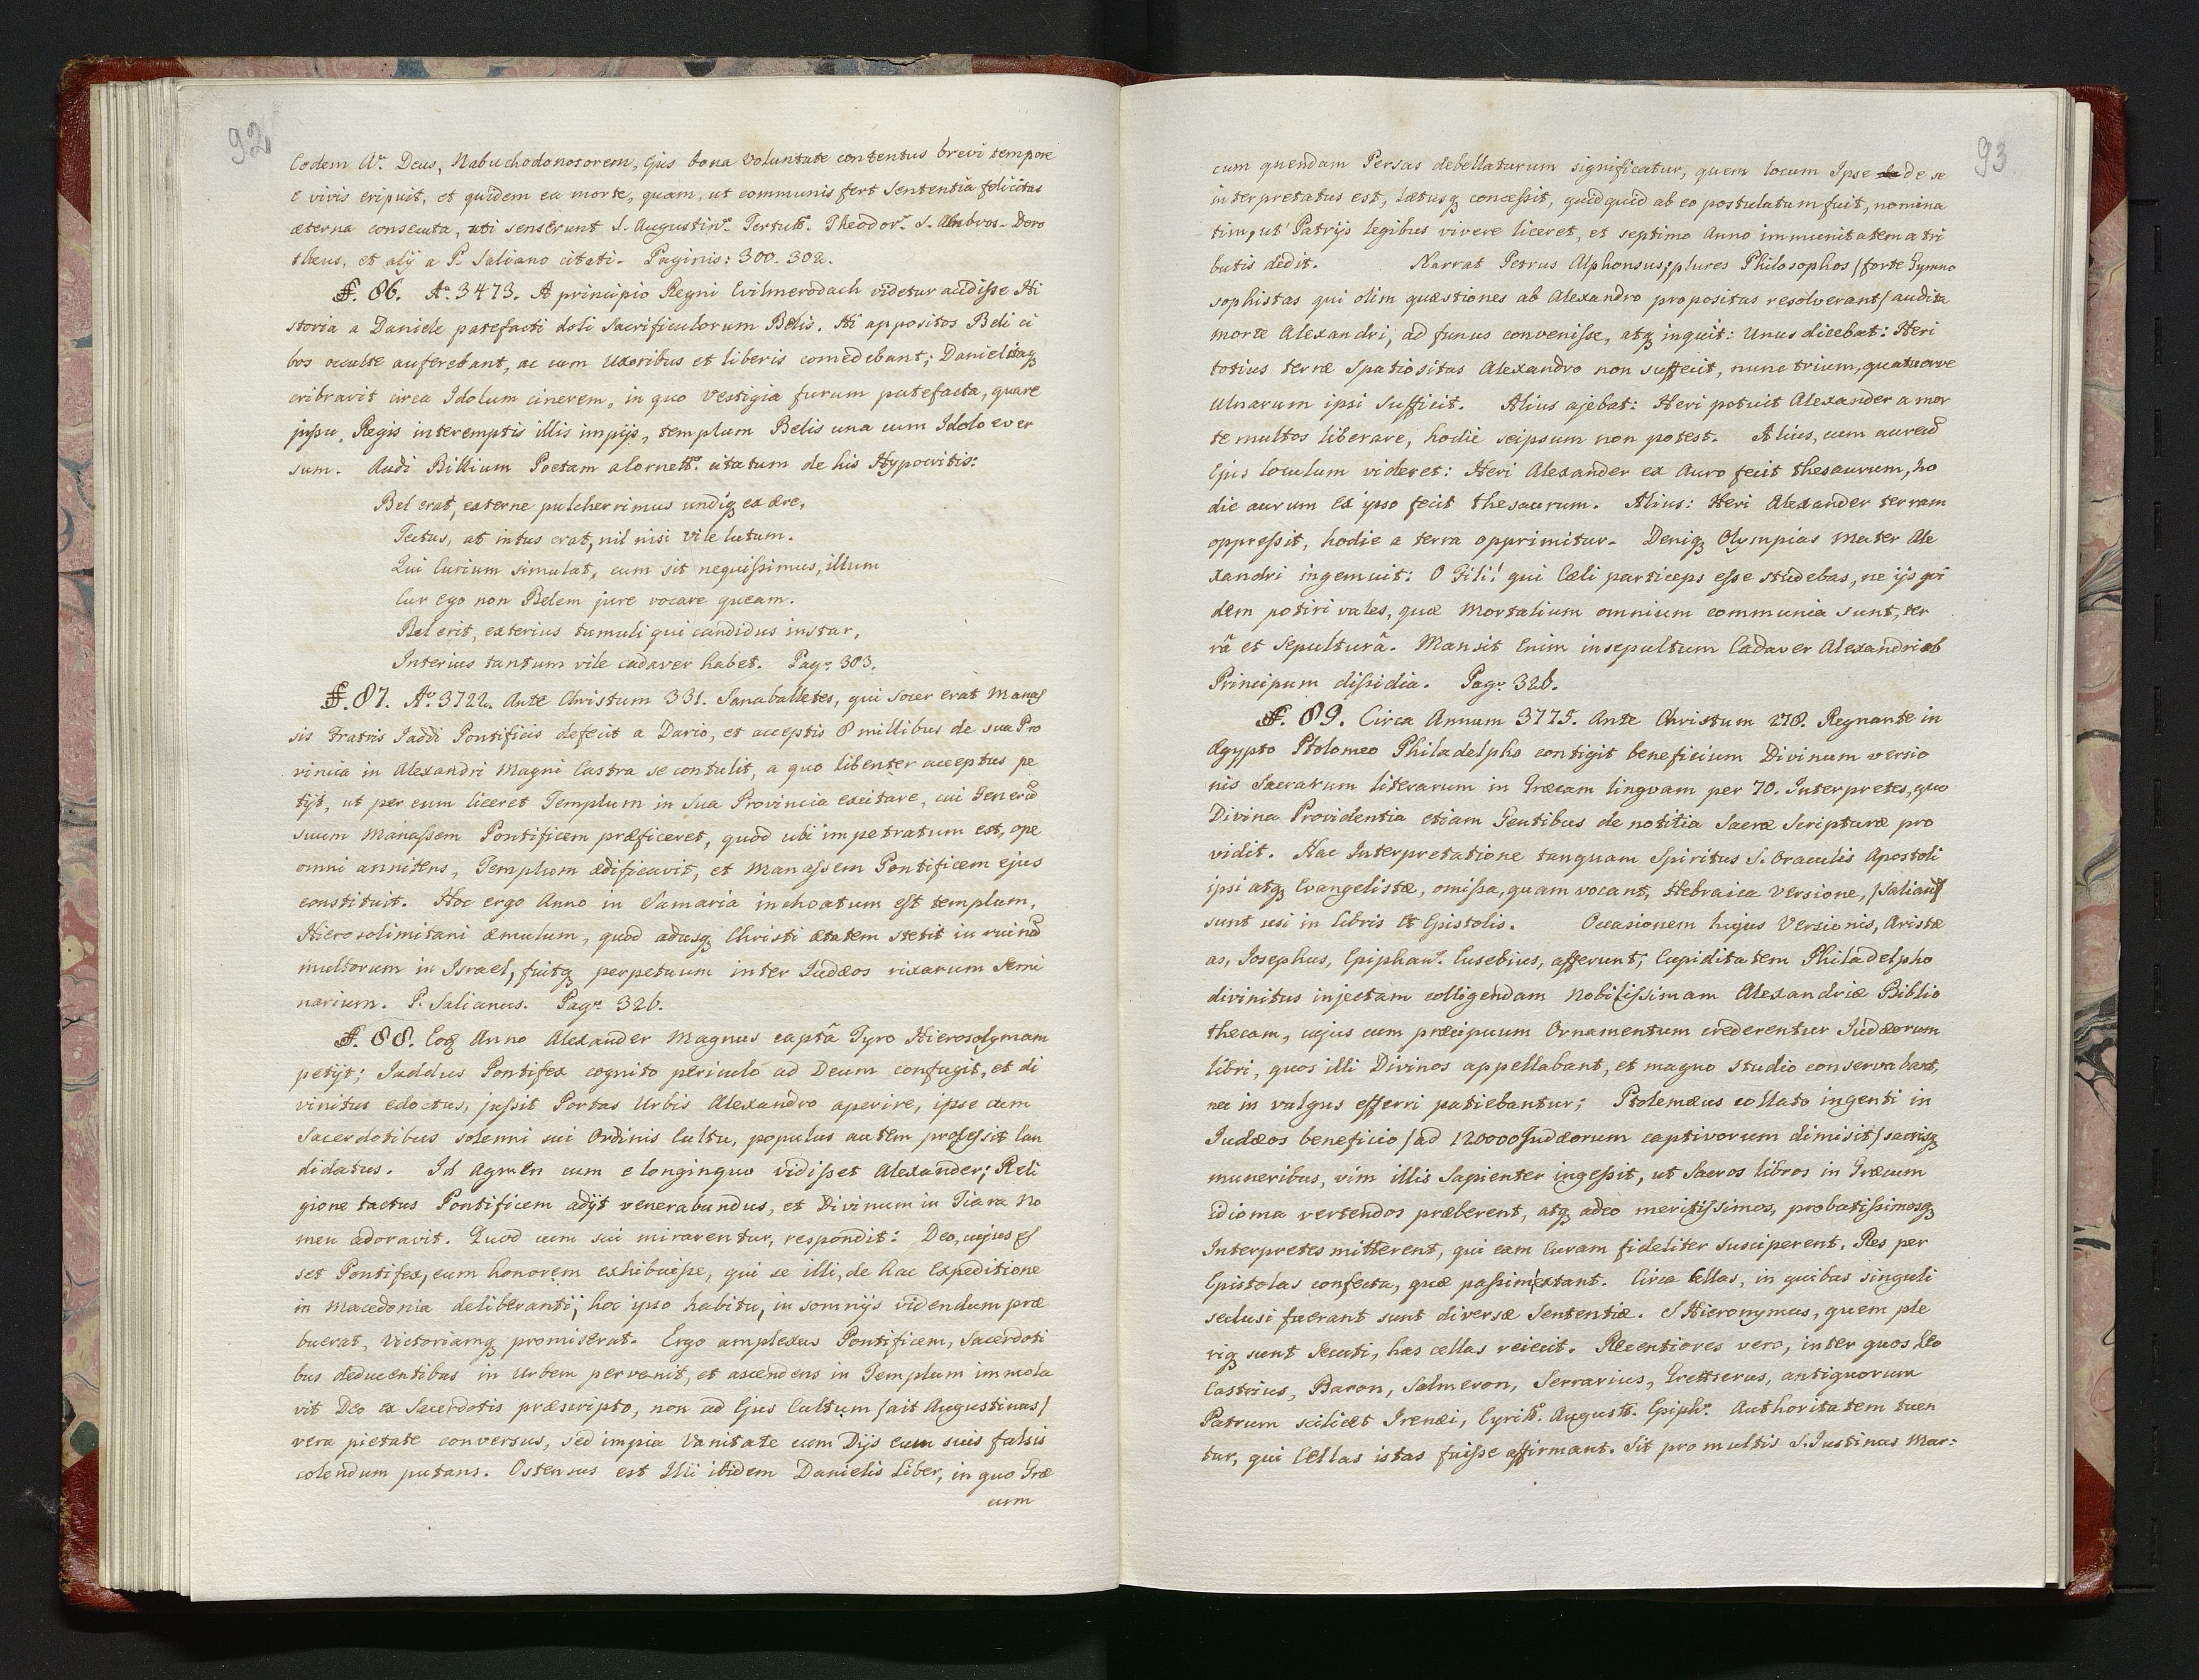 92
Eodem Aº. Deus, Nabuchodonosorem, Ejus bona voluntate contentus brevi tempore
e vivis eripuit, et quidem ea morte, quam, ut communis fert Sententia felicitas
æterna consecuta, uti senserunt S. Augustinˢ. Tertull. Theodorˢ. S. Ambros. Doro
theus, et alÿ a P. Saliano citati. Paginis: 300. 302.
§. 86. Aº. 3473. A principio Regni Evilmerodach videtur acidisse Hi
storia a Daniele patefacti doli Sacrificulorum Belis. Hi appositos Beli ci
bos occulte auferebant, ac cum Uxoribus et liberis comedebant; Daniel itaq
cribravit circa Idolum cinerem, in quo Vestigia furum patefacta, quare
jussu Regis interemptis illis impijs, templum Belis una cum Idolo ever
sum. Audi Billium Poetam a Cornell. citatum de his Hypocritis:
Bel erat, externe pulcherrimus undiq ex ære,
Tectus, at intus erat, nil nisi vile lutum.
Qui Curium simulat, cum sit nequissimus, illum
Cur ego non Belem jure vocare queam.
Bel erit, exterius tumuli qui candidus instar,
Interius tantum vile cadaver habet. Pagˢ. 303.
§. 87. Aº. 3722. Ante Christum 331. Sanaballetes, qui socer erat Manas
sis Fratris Jaddi Pontificis defecit a Dario, et acceptis 8 millibus de sua Pro
vincia in Alexandri Magni Castra se contulit, a quo libenter acceptus pe
tijt, ut per eum liceret Templum in sua Provincia excitare, cui Generũ
suum Manassem Pontificem præficeret, quod ubi impetratum est, ope
omni annitens, Templum ædificavit, et Manassem Pontificem ejus
constituit. Hoc ergo Anno in Samaria inchoatum est templum,
Hierosolimitani æmulum, quod adusq Christi ætatem stetit in ruinã
multorum in Israel, fuitq perpetuum inter Judæos rixarum Semi
narium. P. Salianus. Pagˢ. 326.
§. 88. Eoq Anno Alexander Magnus captâ Tyro Hierosolymam
petijt; Jaddus Pontifex cognito periculo ad Deum confugit, et di
vinitus edoctus, jussit Portas Urbis Alexandro aperire, ipse cum
Sacerdotibus solemni sui Ordinis Cultu, populus autem processit Can
didatus. Id Agmen cum e longinquo vidisset Alexander; Reli
gione tactus Pontificem adijt venerabundus, et Divinum in Tiara No
men adoravit. Quod cum sui mirarentur, respondit: Deo, cujus es
set Pontifex, eum honorem exhibuisse, qui se illi, de hac Expeditione
in Macedonia deliberanti, hoc ipso habitu, in somnijs videndum præ
buerat, Victoriamq promiserat. Ergo amplexus Pontificem, Sacerdoti
bus deducentibus in Urbem pervenit, et ascendens in Templum immola
vit Deo ex Sacerdotis præscripto, non ad Ejus Cultum /ait Augustinus/
vera pietate conversus, sed impia Vanitate cum Dijs eum suis falsis
colendum putans. Ostensus est Illi ibidem Danielis Liber, in quo Græ
cum
93
cum quendam Persas debellaturum significatur, quem locum Ipse de se
interpretatus est, Lætusq concessit, quidquid ab eo postulatum fuit, nomina
tim, ut Patrijs legibus vivere liceret, et septimo Anno immunitatem a tri
butis dedit. Narrat Petrus Alphonsus; plures Philosophos /forte Gymno
sophistas qui olim quæstiones ab Alexandro propositas resolverant/ audita
morte Alexandri, ad funus convenisse, atq inquit: Unus dicebat: Heri
totius terræ spatiositas Alexandro non suffecit, nunc trium, quatuorve
Ulnarum ipsi Sufficit. Alius ajebat: Heri potuit Alexander a mor
te multos liberare, hodie seipsum non potest. Alius, cum aureũ
Ejus loculum videret: Heri Alexander ex Auro fecit thesaurum, ho
die aurum ex ipso fecit thesaurum. Alius: Heri Alexander terram
oppressit, hodie a terra opprimitur. Deniq Olympias Mater Ale
xandri ingemuit: O Fili! qui Cæli particeps esse studebas, ne ijs qui
dem potiri vales, quæ Mortalium omnium communia sunt, ter
râ et Sepulturâ. Mansit Enim insepultum Cadaver Alexandri ob
Principum dissidia. Pagˢ. 328.
§. 89. Circa Annum 3775. Ante Christum 278. Regnante in
Ægypto Ptolomeo Philadelpho contigit beneficium Divinum versio
nis Sacrarum literarum in Græcam lingvam per 70. Interpretes, quo
Divina Providentia etiam Gentibus de notitia Sacræ Scripturæ pro
vidit. Hac Interpretatione tanquam Spiritus S. Oraculis Apostoli
ipsi atq Evangelistæ, omissa, quam vocant, Hebraica Versione, /Salian9/
sunt usi in Libris et Epistolis. Occasionem hujus Versionis, Aristæ
as, Josephus, Epiphanˢ. Eusebius, afferunt; Cupiditatem Philadelpho
divinitus injectam colligendam Nobilissimam Alexandriæ Biblio
thecam, cujus cum præcipuum Ornamentum crederentur Judæorum
libri, quos illi Divinos appellabant, et magno studio conservabant,
nec in vulgus efferri patiebantur; Ptolemæus collato ingenti in
Judæos beneficio /ad 120000 Judæorum captivorum dimisit/ sacrisq
muneribus, vim illis Sapienter ingessit, ut Sacros libros in Græcum
idioma vertendos præberent, atq adeo meritissimos, probatissimosq
Interpretes mitterent, qui eam Curam fideliter susciperent. Res per
Epistolas confecta, quæ passim extant. Circa Cellas, in quibus singuli
seclusi fuerant sunt diversæ Sententiæ. S Hieronymus, quem ple
riq sunt Secuti, has cellas reiecit. Recentiores vero, inter quos Leo
Castrius, Baron, Salmeron, Serrarius, Grettserus, antiquorum
Patrum scilicet Irenæi, Cyrill. August. Epiphˢ. Authoritatem tuen
tur, qui Cellas istas fuisse affirmant. Sit pro multis S. Justinus Mar: